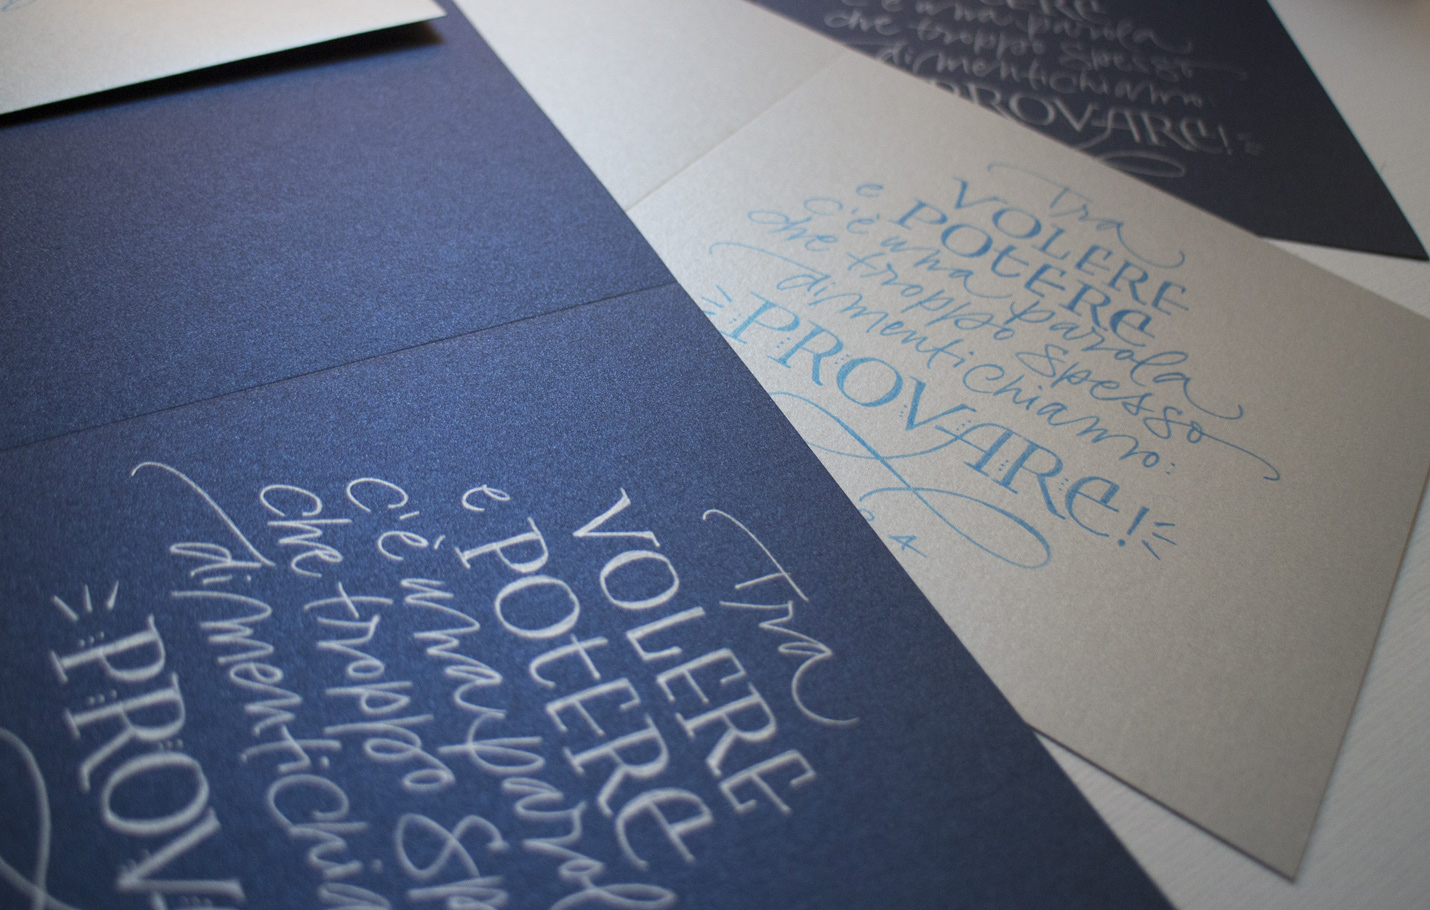 Tra
VOLERE
e POTERE
c'è una parola
che troppo spesso
dimentichiamo:
PROVARE!
Tra
VOLERE
e POTERE
c'è una parol
che troppo sp
dimentichia
PROV
c'è una parola
che troppo spesso
dimentichiamo
PROVARE!